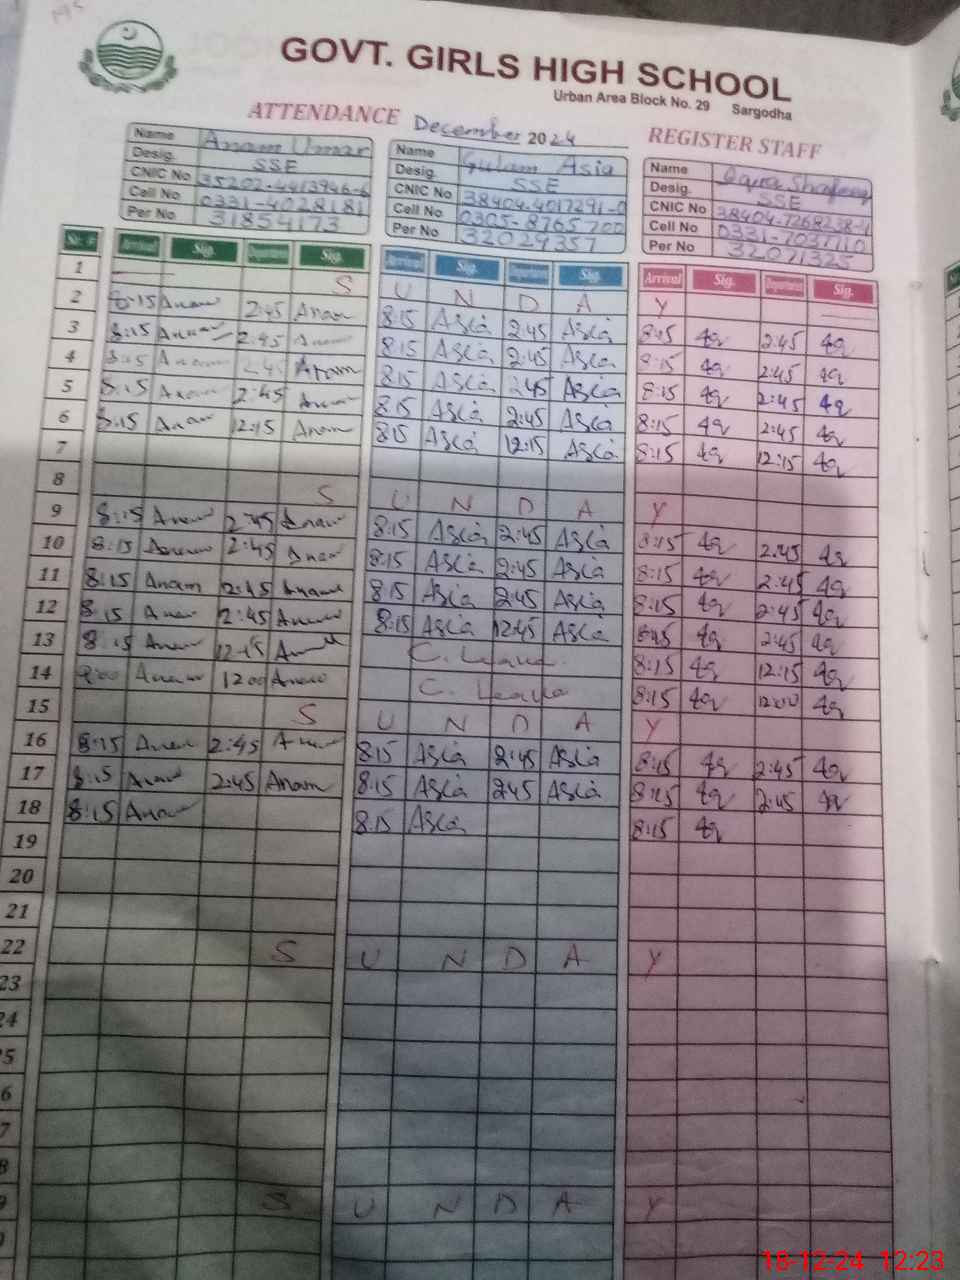 GOVT. GIRLS HIGH SCHOOL
Urban Area Block No. 29 Sargodha
ATTENDANCE December 2024 REGISTER STAFF
Name Anam Umar Name Gulam Asia Name Iqra
Desig. SSE Desig. SSE Desig. SSE
CNIC No 35202-4413946-6 CNIC No 38404-4017291-0 CNIC No 38404-7268238-4
Cell No 0331-4028181 Cell No 0305-8765700 Cell No 0331-7037110
Per No 31854173 Per No 32029357 Per No 32071325
Sr. # Arrival Sig. Departure Sig. Arrival Sig. Departure Sig. Arrival Sig. Departure Sig.
1 S U N D A Y
2 8:15 Anam 2:45 Anam 8:15 Asia 2:45 Asia 8:15 2:45
3 8:15 Anam 2:45 Anam 8:15 Asia 2:45 Asia 8:15 2:45
4 8:15 Anam 2:45 Anam 8:15 Asia 2:45 Asia 8:15 2:45
5 8:15 Anam 2:45 Anam 8:15 Asia 2:45 Asia 8:15 2:45
6 8:15 Anam 12:15 Anam 8:15 Asia 12:15 Asia 8:15 12:15
7
8 S U N D A Y
9 8:15 Anam 2:45 Anam 8:15 Asia 2:45 Asia 8:15 2:45
10 8:15 Anam 2:45 Anam 8:15 Asia 2:45 Asia 8:15 2:45
11 8:15 Anam 2:45 Anam 8:15 Asia 2:45 Asia 8:15 2:45
12 8:15 Anam 2:45 Anam 8:15 Asia 12:45 Asia 8:15 2:45
13 8:15 Anam 12:15 Anam C. Leave 8:15 12:15
14 Anam 12:00 Anam C. Leave 8:15 12:00
15 S U N D A Y
16 8:15 Anam 2:45 Anam 8:15 Asia 2:45 Asia 8:15 2:45
17 8:15 Anam 2:45 Anam 8:15 Asia 2:45 Asia 8:15 2:45
18 8:15 Anam 8:15 Asia 8:15
19
20
21
22 S U N D A Y
23
24
5
6
7
8
9 S U N D A Y
0
18-12-24 12:23